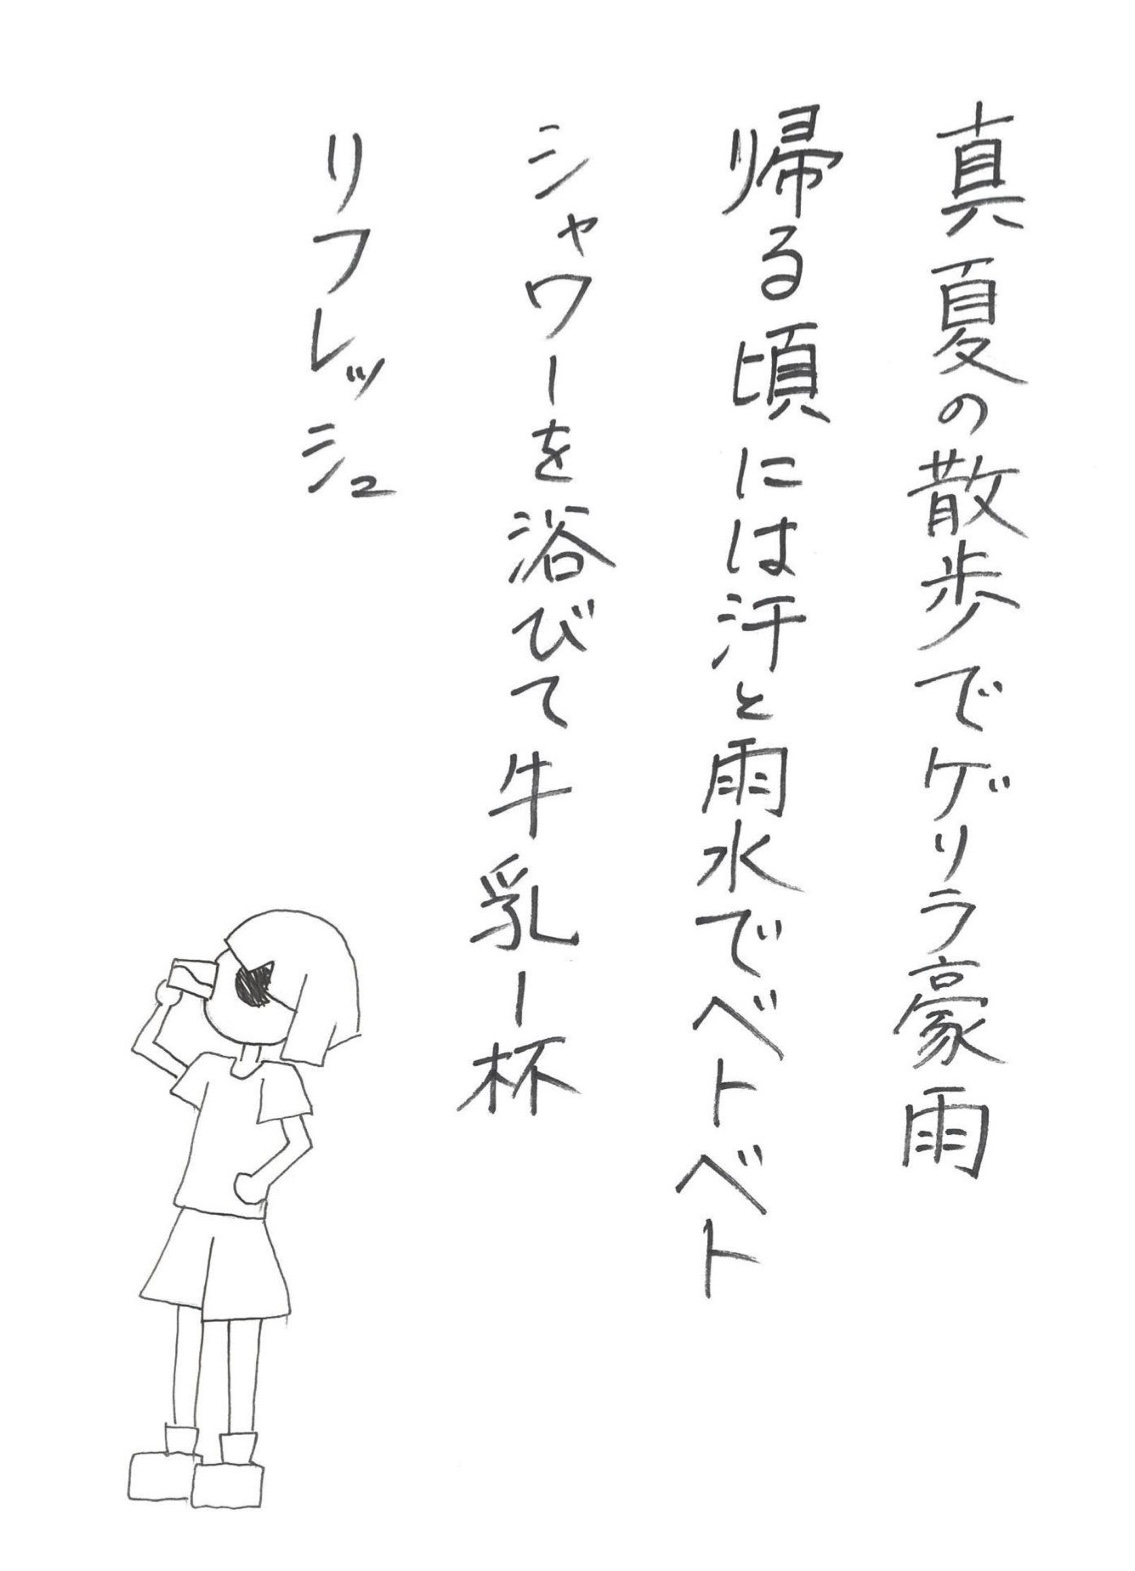 真夏の散歩でゲリラ豪雨
帰る頃には汗と雨水でベトベト
シャワーを浴びて牛乳一杯
リフレッシュ